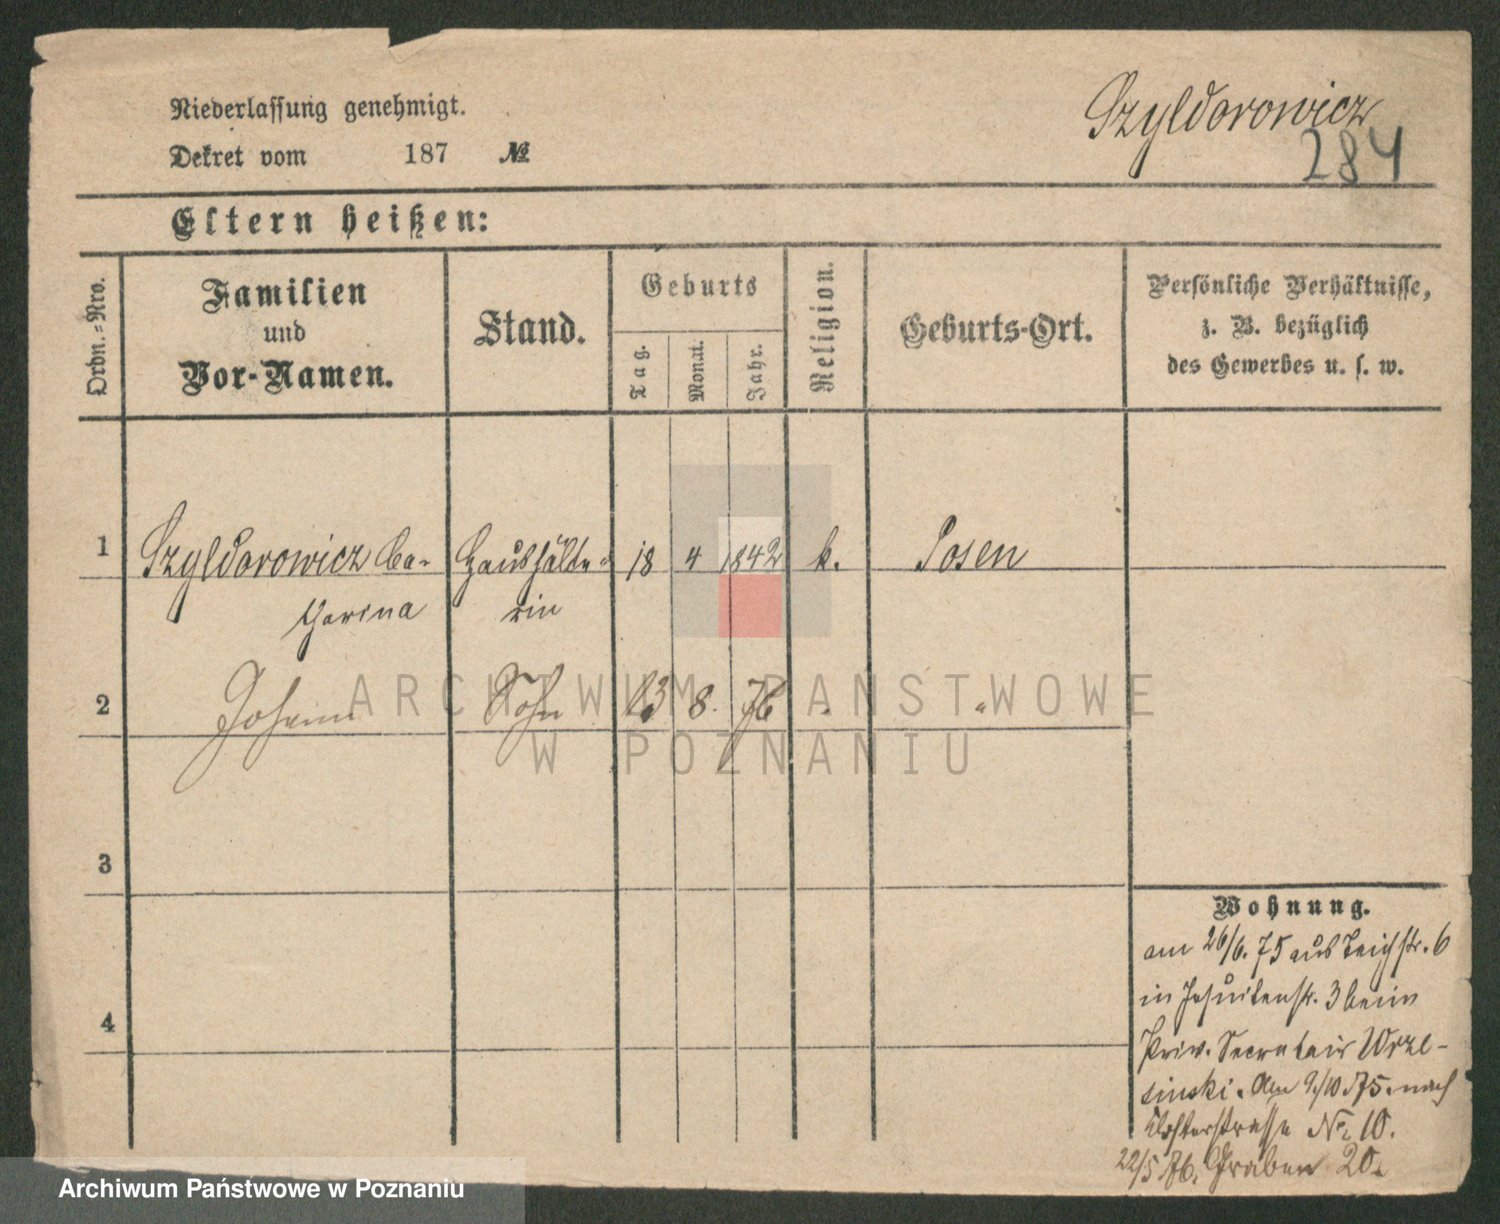 Niederlassung genehmigt.
Dekret vom 187 №
Szyldorowicz
284
Eltern heißen:
Ordn.=Nro.
Familien
und
Vor-Namen.
Stand.
Geburts
Tag.
Monat.
Jahr.
Religion.
Geburts-Ort.
Persönliche Verhältnisse,
z. B. bezüglich
des Gewerbes u. s. w.
1 Szyldorowicz Ca- Haushälte- 18 4 1842 k. Posen
tharina rin
2 Sohn 13 8. 76 . "
ARCHIWUM PAŃSTWOWE
W POZNANIU
3
4
Wohnung.
am 26/6. 75 aus Teichstr. 6
in Jesuitenstr. 3 beim
Priv. Secretair Wrze-
sinski. Am 9/10. 75. nach
Klosterstrasse No. 10.
22/5 76. Graben 20.
Archiwum Państwowe w Poznaniu